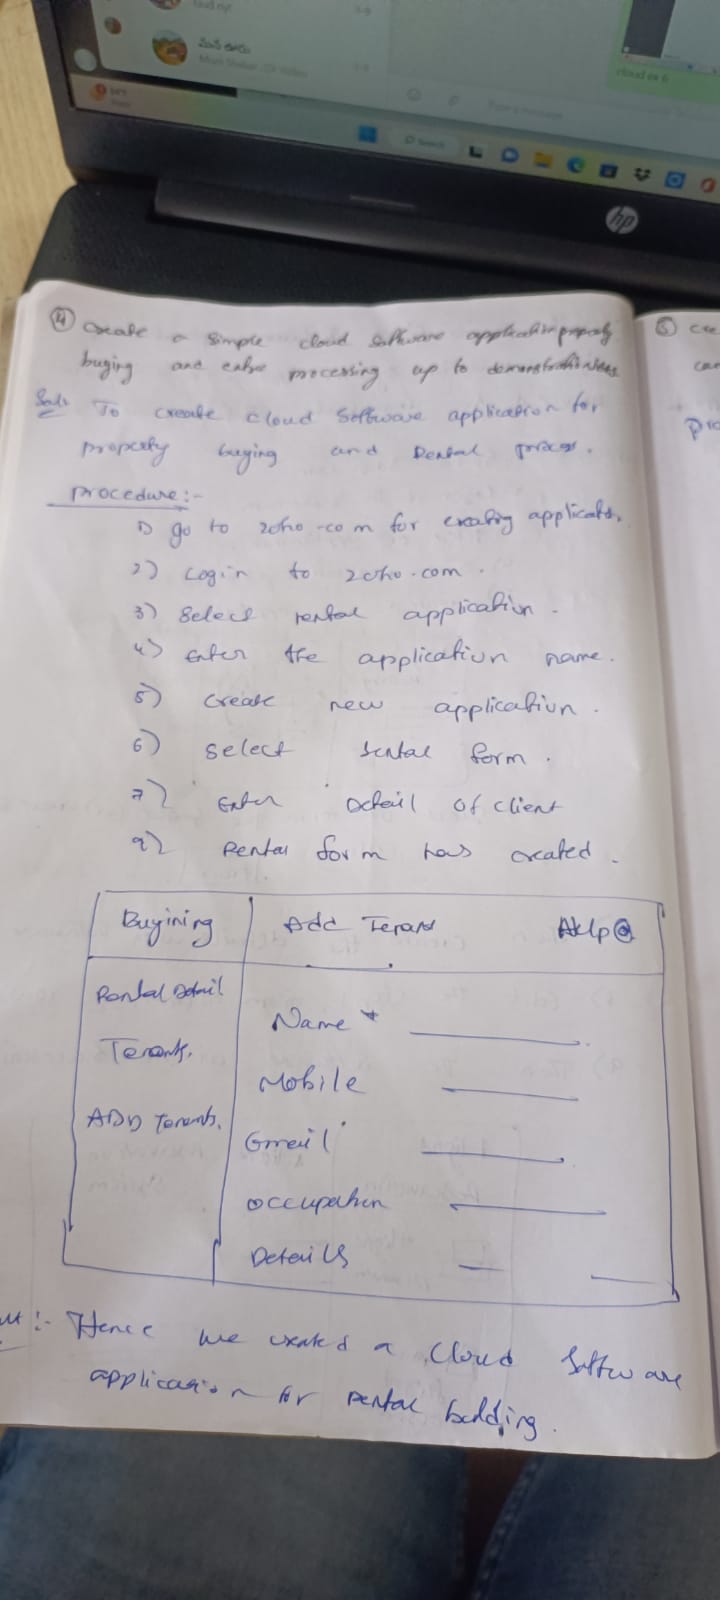 మన ఊరు
Type a message
cloud ex 6
Search
hp
④ Create a simple cloud software application property
buying and processing up to demonstration
To create cloud software application for
property buying and Rental process.
procedure:-
1) go to zoho.com for creating applicatn.
2) Login to zoho.com.
3) Select rental application.
4) Enter the application name.
5) Create new application.
6) Select rental form.
7) Enter Detail of client
9) Rental form has created.
Buyining Add Tenant Help
Rental Detail
Name *
Tenants.
Mobile
ADD Tenants.
Gmail
occupation
Details
:- Hence we created a cloud software
application for rental building.
⑤ Cre